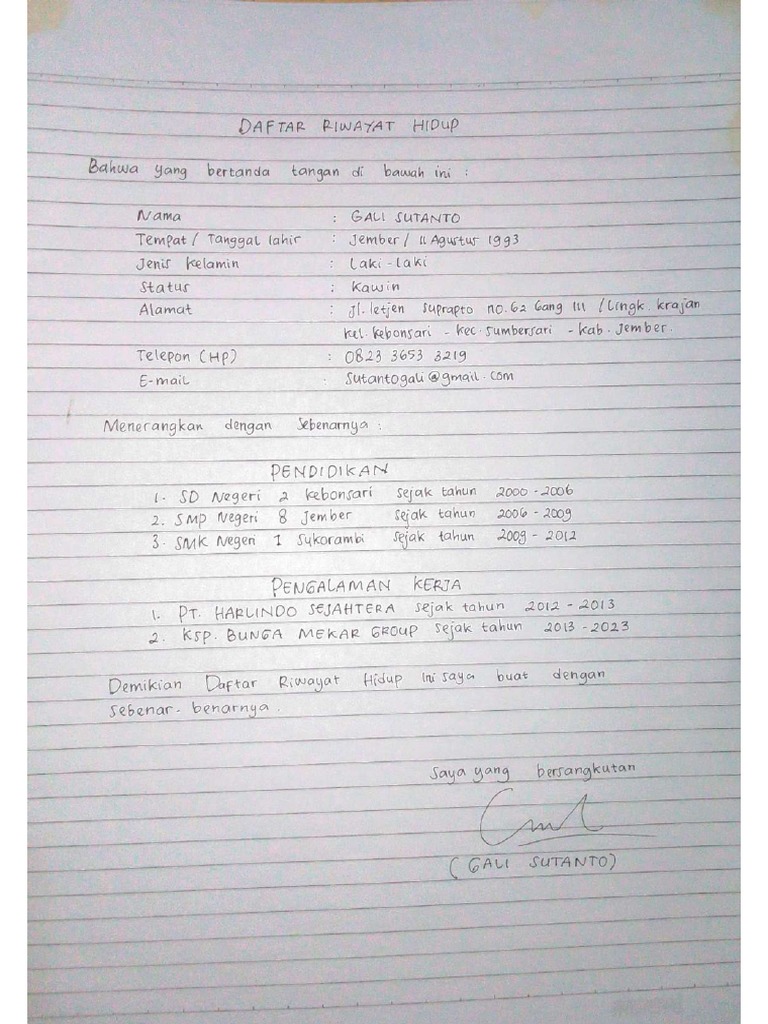 DAFTAR RIWAYAT HIDUP
Bahwa yang bertanda tangan di bawah ini :
Nama : GALI SUTANTO
Tempat / Tanggal lahir : Jember / 11 Agustus 1993
Jenis Kelamin : Laki - laki
Status : Kawin
Alamat : Jl. letjen suprapto no. 62 Gang III / Lingk. krajan
kel. kebonsari - kec. sumbersari - kab. Jember.
Telepon (HP) : 0823 3653 3219
E-mail : Sutantogali@gmail.com
Menerangkan dengan Sebenarnya :
PENDIDIKAN
1. SD Negeri 2 kebonsari sejak tahun 2000 - 2006
2. SMP Negeri 8 Jember sejak tahun 2006 - 2009
3. SMK Negeri 1 Sukorambi sejak tahun 2009 - 2012
PENGALAMAN KERJA
1. PT. HARLINDO SEJAHTERA sejak tahun 2012 - 2013
2. KSP. BUNGA MEKAR GROUP sejak tahun 2013 - 2023
Demikian Daftar Riwayat Hidup ini saya buat dengan
sebenar - benarnya.
Saya yang bersangkutan
(GALI SUTANTO)